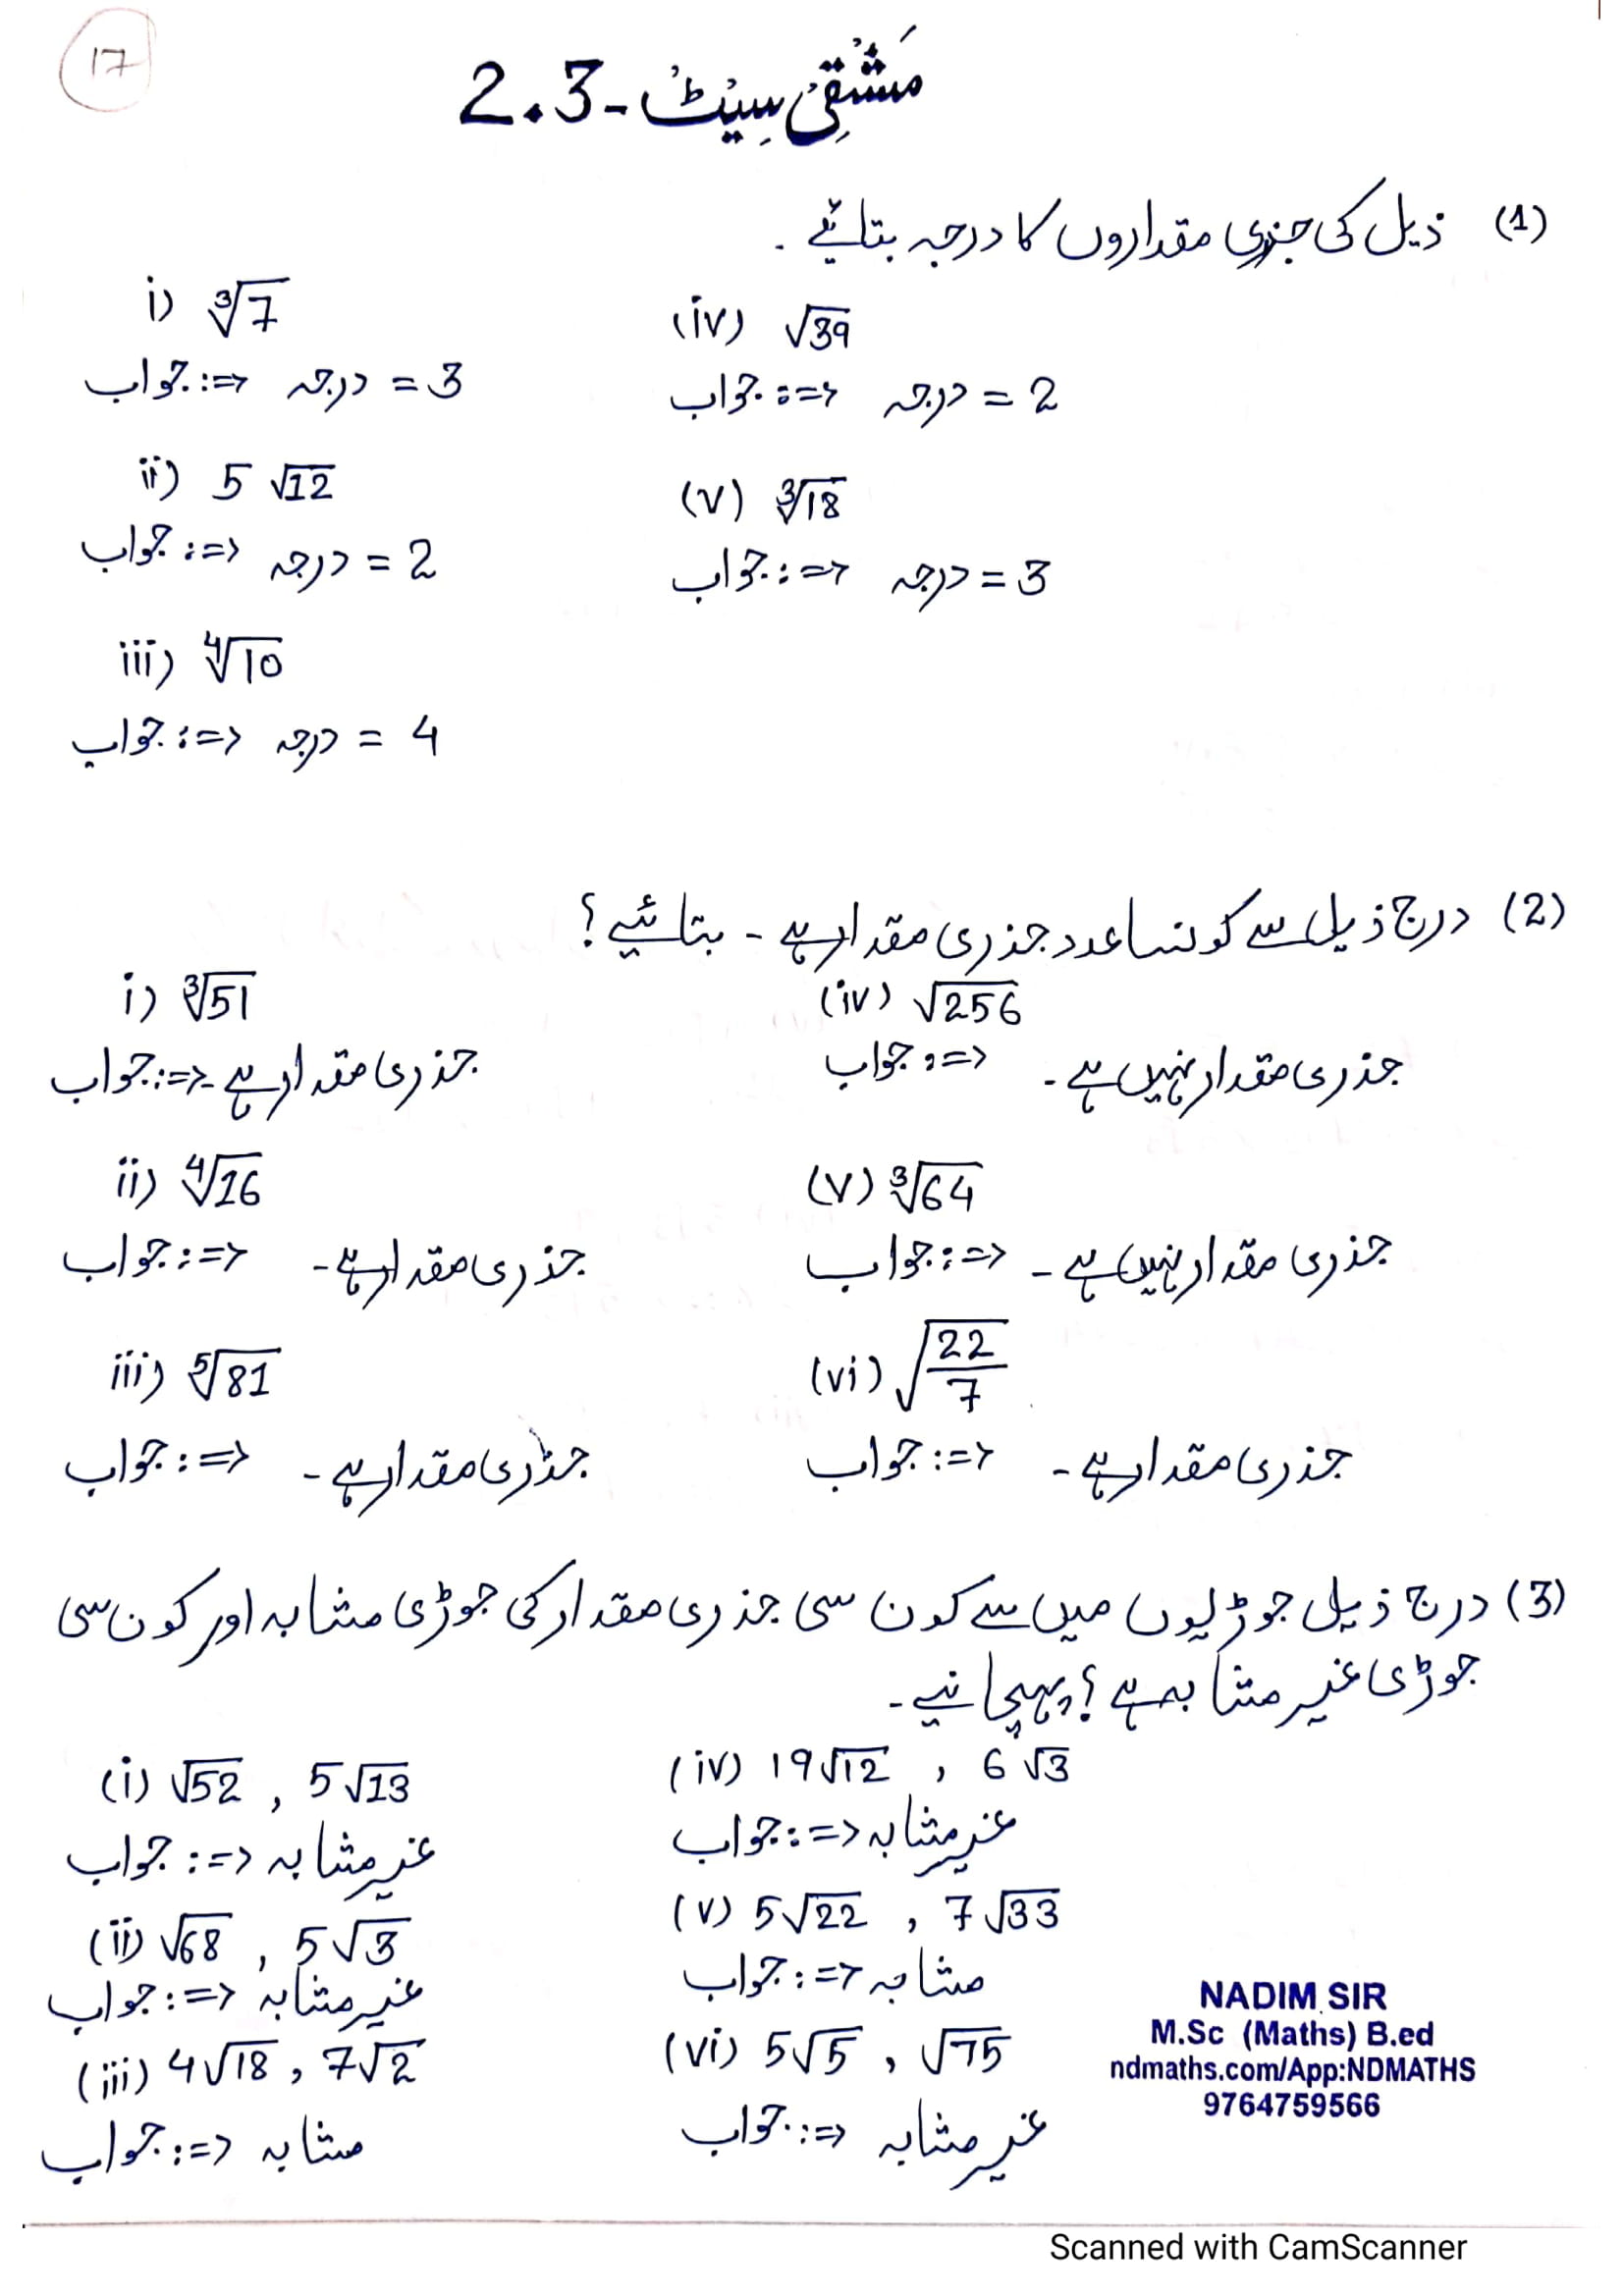 17
مَشْقِیْ سِیْٹْ - 2.3
(1) ذیل کی جذری مقداروں کا درجہ بتائیے .
i) ∛7
جواب :=> درجہ = 3
ii) 5 √12
جواب :=> درجہ = 2
iii) ∜10
جواب :=> درجہ = 4
(iv) √39
جواب :=> درجہ = 2
(v) ∛18
جواب :=> درجہ = 3
(2) درج ذیل سے کونسا عدد جذری مقدار ہے - بتائیے ؟
i) ∛51
جواب :=> جذری مقدار ہے -
ii) ∜16
جواب :=> جذری مقدار ہے -
iii) ⁵√81
جواب :=> جذری مقدار ہے -
(iv) √256
جواب :=> جذری مقدار نہیں ہے -
(v) ∛64
جواب :=> جذری مقدار نہیں ہے -
(vi) √(22/7)
جواب :=> جذری مقدار ہے -
(3) درج ذیل جوڑیوں میں سے کون سی جذری مقدار کی جوڑی مشابہ اور کون سی
جوڑی غیر مشابہ ہے ؟ پہچانیے -
(i) √52 , 5√13
جواب :=> غیر مشابہ
(ii) √68 , 5√3
جواب :=> غیر مشابہ
(iii) 4√18 , 7√2
جواب :=> مشابہ
(iv) 19√12 , 6√3
جواب :=> غیر مشابہ
(v) 5√22 , 7√33
جواب :=> مشابہ
(vi) 5√5 , √75
جواب :=> غیر مشابہ
NADIM SIR
M.Sc (Maths) B.ed
ndmaths.com/App:NDMATHS
9764759566
Scanned with CamScanner